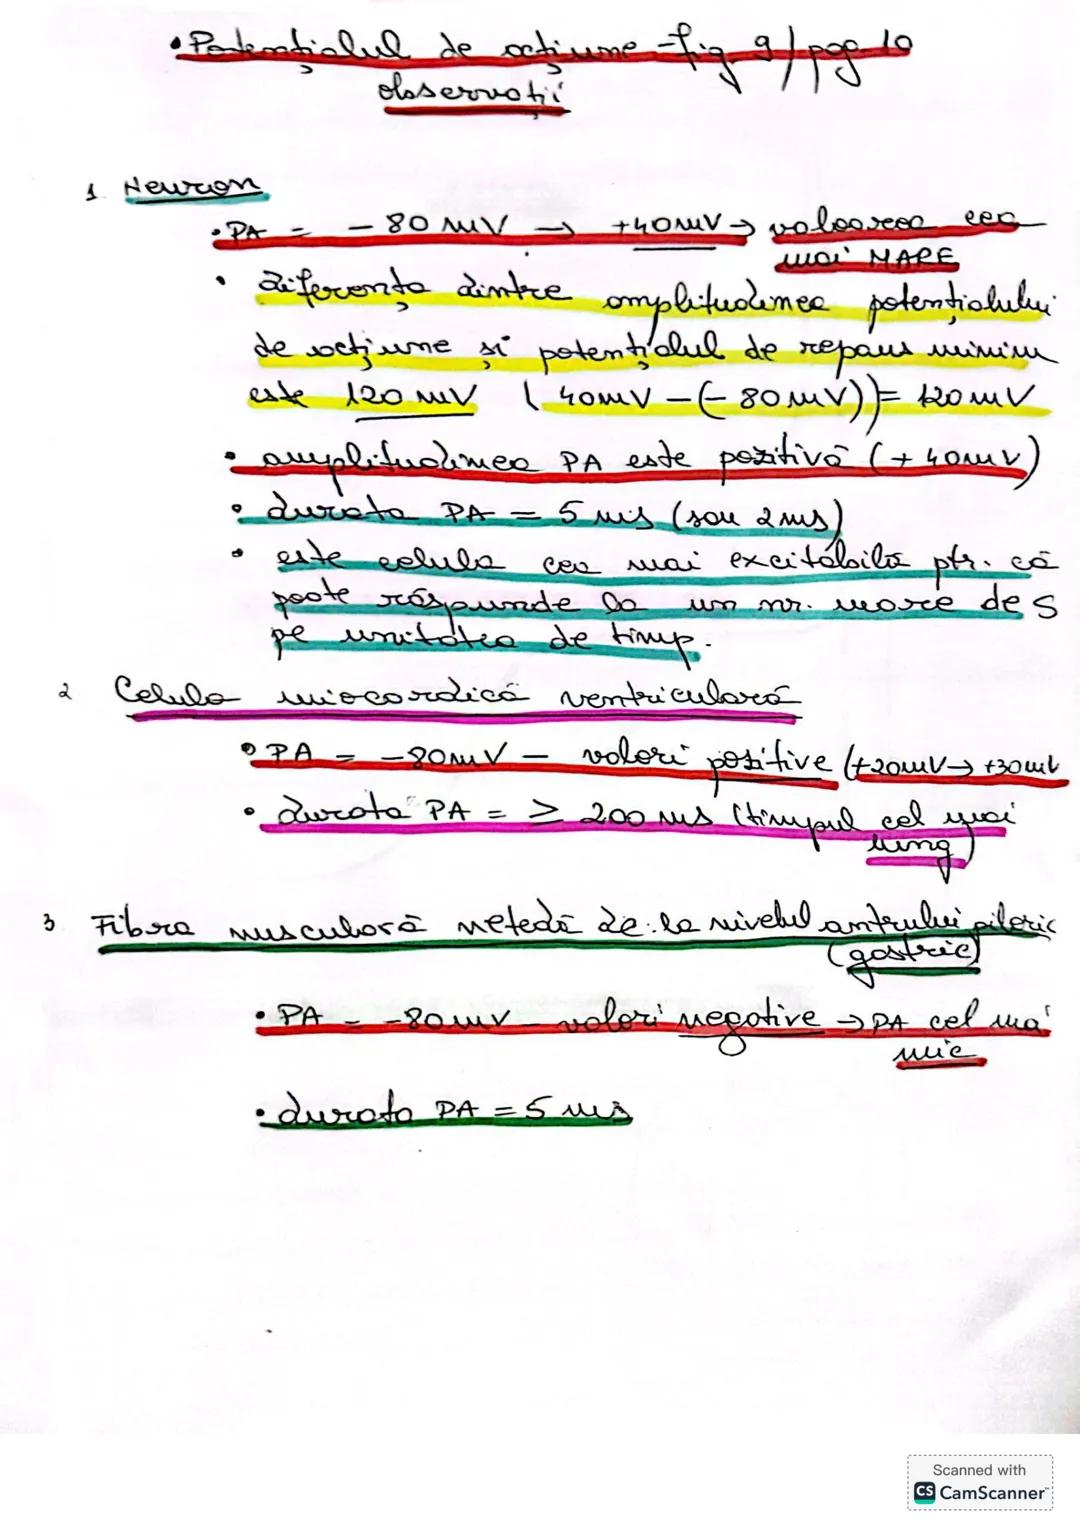 • Potențialul de acțiune - fig 9 / pag 10
observații
1. Neuron
• PA = - 80 mV → +40mV → valoarea cea
mai MARE
• diferența dintre amplitudinea potențialului
de acțiune și potențialul de repaus minim
este 120 mV (40mV - (- 80 mV)) = 120 mV
• amplitudinea PA este pozitivă (+ 40mV)
• durata PA = 5 ms (sau 2 ms)
• este celula cea mai excitabilă ptr. că
poate răspunde la un nr. mare de S
pe unitatea de timp.
2 Celula miocardică ventriculară
• PA = -80mV - valori pozitive (+20mV → +30mV
• durata PA = ≥ 200 ms (timpul cel mai
lung)
3. Fibra musculară netedă de la nivelul antrului piloric
(gastric)
• PA = -80mV - valori negative → PA cel mai
mic
• durata PA = 5 ms
Scanned with
CS CamScanner